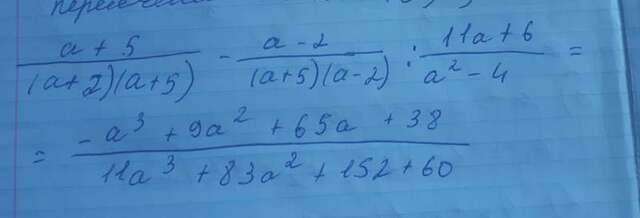 пересечени
a + 5 / (a+2)(a+5) - a - 2 / (a+5)(a-2) : 11a + 6 / a² - 4 =
= -a³ + 9a² + 65a + 38 / 11a³ + 83a² + 152 + 60